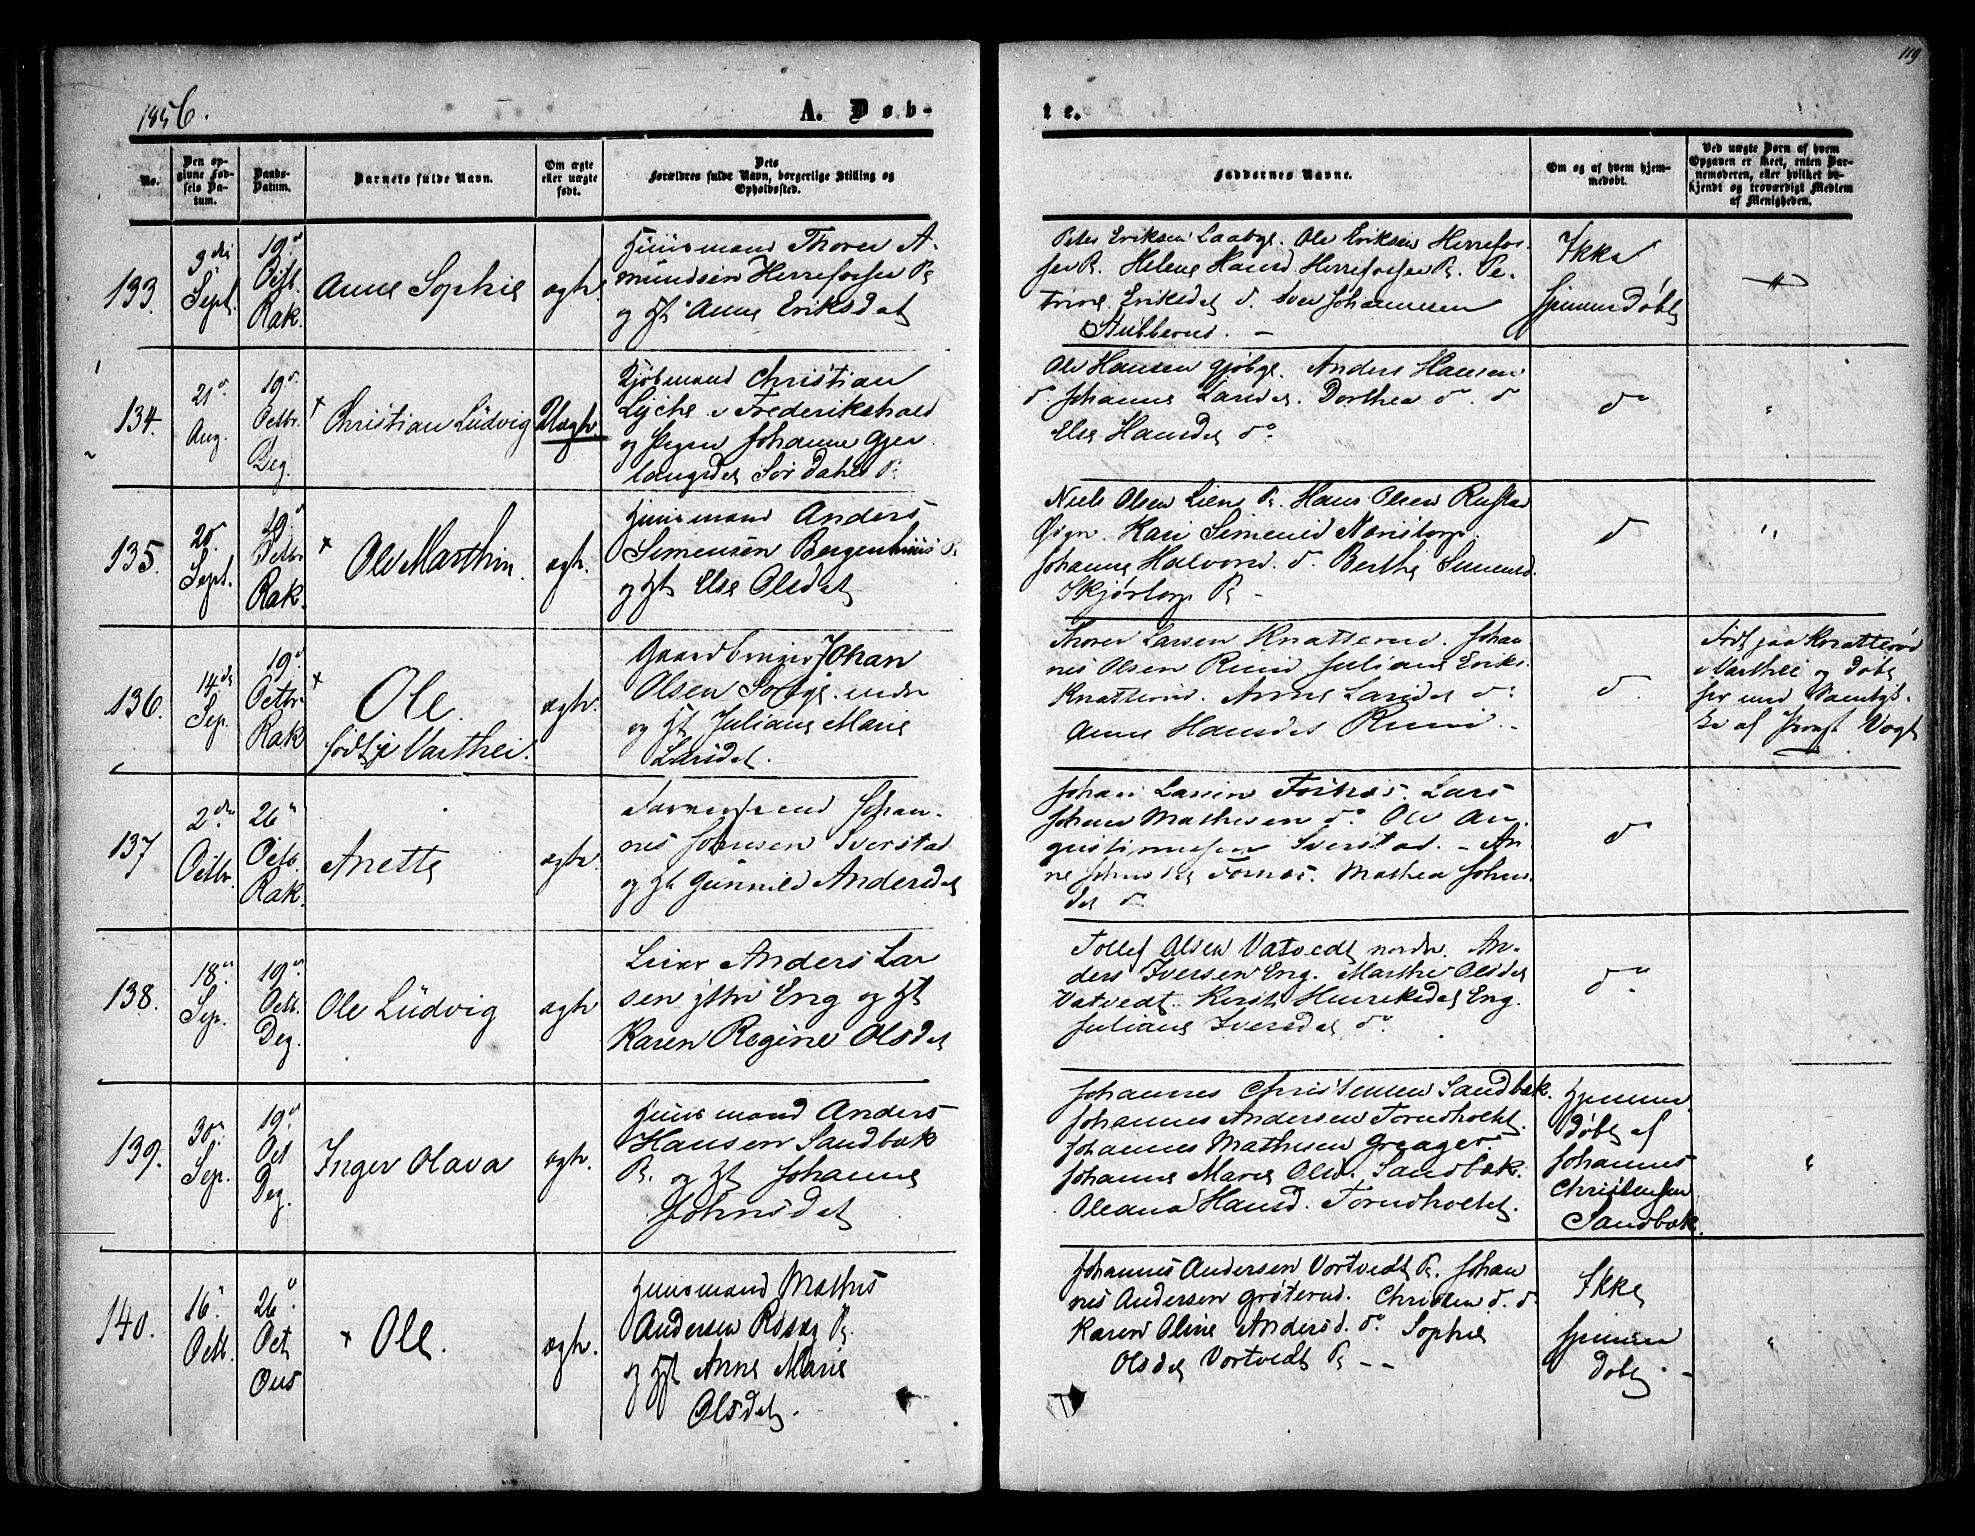 119
1856.
A. Døb-
te.
No.
Den op-
givne Fød-
sels Da-
tum.
Daabs-
Datum.
Barnets fulde Navn.
Om ægte
eller uægte
født.
Dets
Forældres fulde Navn, borgerlige Stilling og
Opholdssted.
Faddernes Navne.
Om og af hvem hjem-
medøbt.
Ved uægte Børn af hvem
Opgaven er skeet, enten Bar-
nemoderen, eller hvilket be-
kjendt og troværdigt Medlem
af Menigheden.
133.
3die
Sept.
19de
Octb.
Rak.
Anne Sophie
ægte.
Huusmand Thorer A-
mundsen Herrefosser Pl
og H. Anne Eriksdat
Peter Eriksen Laabye. Ole Eriksen Herrefos-
ser Pl. Helene Hansd Herrefosser Pl. Pe-
trine Eriksdat do. Iver Johannesen
Stubberud. -
Ikke
hjemmedøbt
"
134.
21de
Aug.
19de
Octbr.
Deg.
+ Christian Lüdvig
Uægte
Kjøbmand Christian
Lyche i Frederikshald
og Pigen Johanne Gjer
langsdat Sør Dahle Pl
Ole Hansen Gjøbye. Anders Hansen
do. Johanne Larsdat. Dorthea do. do
Else Hansdat do
do
"
135.
20
Sept.
19de
Octbr
Rak.
+ Ole Marthin.
ægte.
Huusmand Anders
Simensen Borgenhuus Pl
og H Else Olsdat
Niels Olsen Liene Pl. Hans Olsen Rustad
Eign. Kari Simensd Narestorp.
Johanne Halvorsd. do. Berthe Simensd.
Skjørtorp Pl -
do
"
136.
14de
Sep.
19de
Octbr
Rak
+ Ole.
født i Varthei.
ægte.
Gaardbruger Johan
Olsen Sorbye nedre
og H. Juliane Marie
Larsdat.
Thorer Larsen Knatterud. Johan-
nes Olsen Ruud Juliane Eriks.
Knatterud. Anne Larsdat do.
Anne Hansdat Ruud. -
do.
Født paa Knatterød
i Varthei og døbt
her med Samtyk-
ke af Provst Vogt
137
2den
Octbr.
26de
Octb.
Rak.
Anette
ægte.
Johan-
nes Johnsen Sverstad
og H. Gunnild Andersdat
Johan Larsen Fosnæs. Lars
Johans Mathisen do. Ole Au-
gustinussen Sverstad. - An-
ne Johnsdat Fornæs. Mathea Johns.
dat do
do
138.
18de
Sep.
19de
Octb.
Deg.
Ole Lüdvig
ægte
Leier Anders Lar
sen yttre Eng og H
Karen Regine Olsdat
Tollef Olsen Vatvedt nordre. An-
ders Iversen Eng. Marthe Olsdat
Vatvedt. Kersti Henriksdat Eng.
Juliane Iversdat do
do.
139.
30te
Sep.
19de
Oct
Deg.
Inger Olava
ægte.
Huusmand Anders
Hansen Sandbæk
Pl. og H Johanne
Johnsdat
Johannes Christensen Sandbæk.
Johannes Andersen Tornholtet.
Johannes Mathisen Greager
Johanne Marie Olsd. Sandbæk.
Oleana Hansd. Tornholtet.
Hjemme-
døbt af
Johannes
Christensen
Sandbæk
"
140.
16de
Octb.
26de
Oct
Ous
+ Ole.
ægte.
Huusmand Mathis
Andersen Rosæg Pl.
og H Anne Marie
Olsdat.
Johannes Andersen Vortvedt Pl. Johan
nes Andersen Grøterud. Christen do. do.
Karen Oline Andersd. do. Sophie
Olsdat Vortvedt Pl - -
Ikke
hjemme
døbt -
"